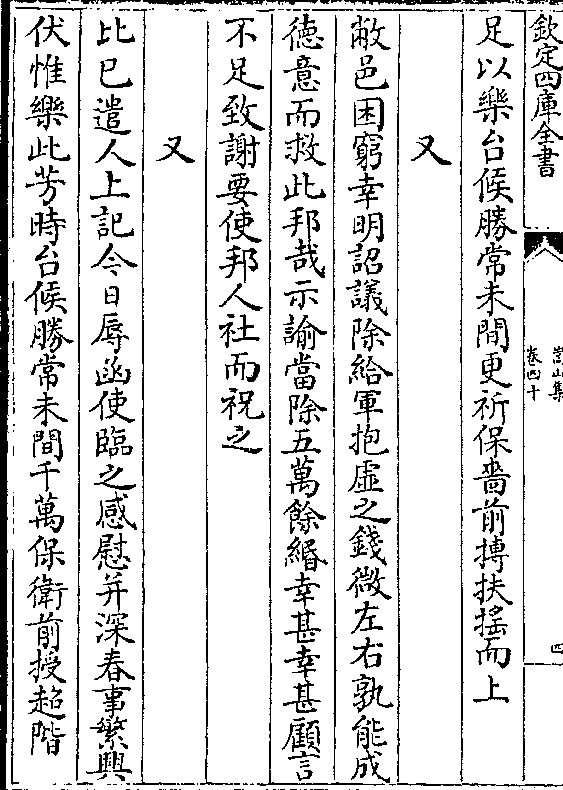 欽定四庫全書
嵩山集
卷四十
四
足以樂台候勝常未間更祈保嗇前摶扶搖而上
又
敝邑困窮幸明詔議除給軍抱虛之錢微左右孰能成
徳意而救此邦哉示諭當除五萬餘緡幸甚幸甚顧言
不足致謝要使邦人社而祝之
又
比已遣人上記今日辱函使臨之感慰并深春事繁興
伏惟樂此芳時台候勝常未間千萬保衛前授超階